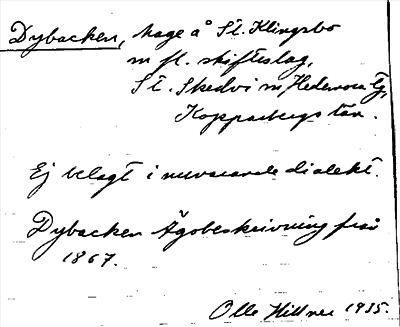 Dybacken, hage å St. Klingsbo
m fl. skifteslag,
St. Skedvi m Hedemora Tg,
Kopparbergs län.
Ej belagt i nuvarande dialekt.
Dybacken Ägobeskrivning från
1867.
Olle Hillner 1935.